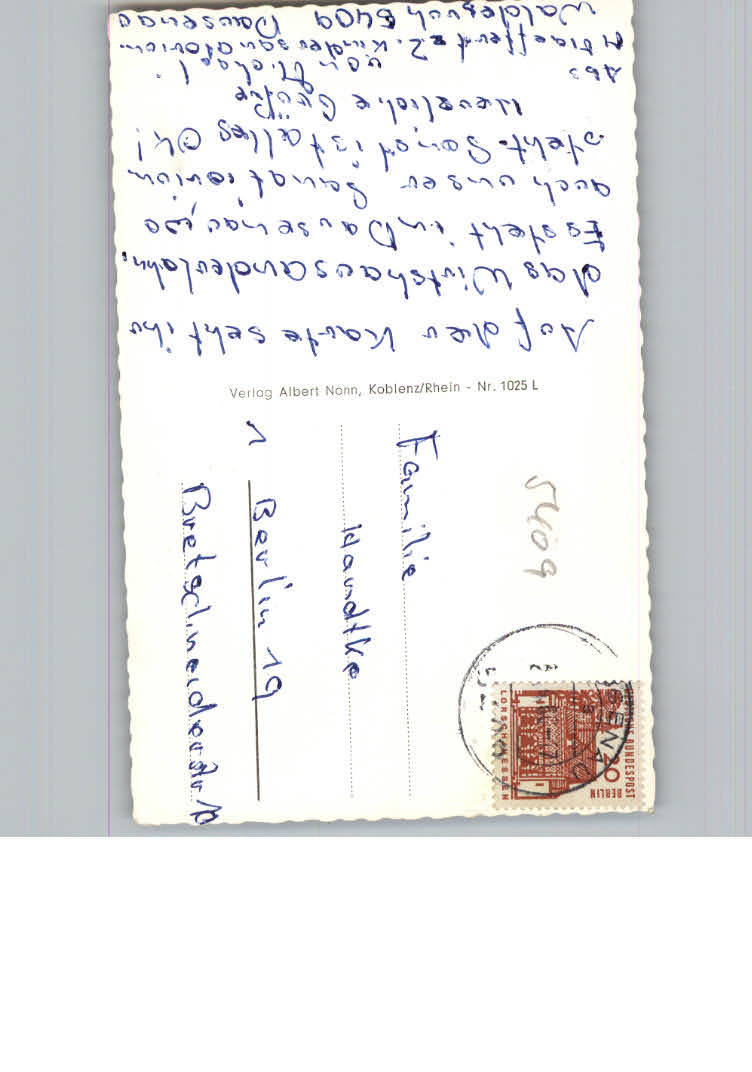 Auf der Karte seht ihr
das Wirtshaus an der Lahn.
Es steht in Dausenau, wo
auch unser Sanatorium
steht. Sonst ist alles OK!
Herzliche Grüße
von Michael!
Abs
M Pfaeffert z. Z. Kindersanatorium
Waldesruh 5409 Dausenau
Verlag Albert Nonn, Koblenz/Rhein - Nr. 1025 L
5409
Familie
Handtke
1 Berlin 19
Bretschneiderstr 10
DEUTSCHE BUNDESPOST
BERLIN
20
LORSCH HESSEN